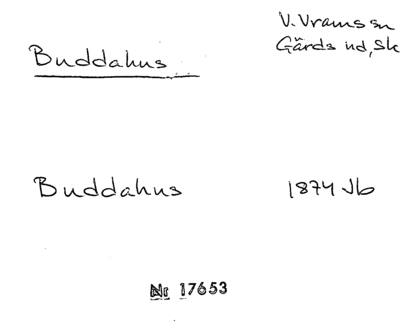 V. Vrams sn
Gärds hd, Sk
Buddahus
Buddahus 1874 Jb
Nr 17653